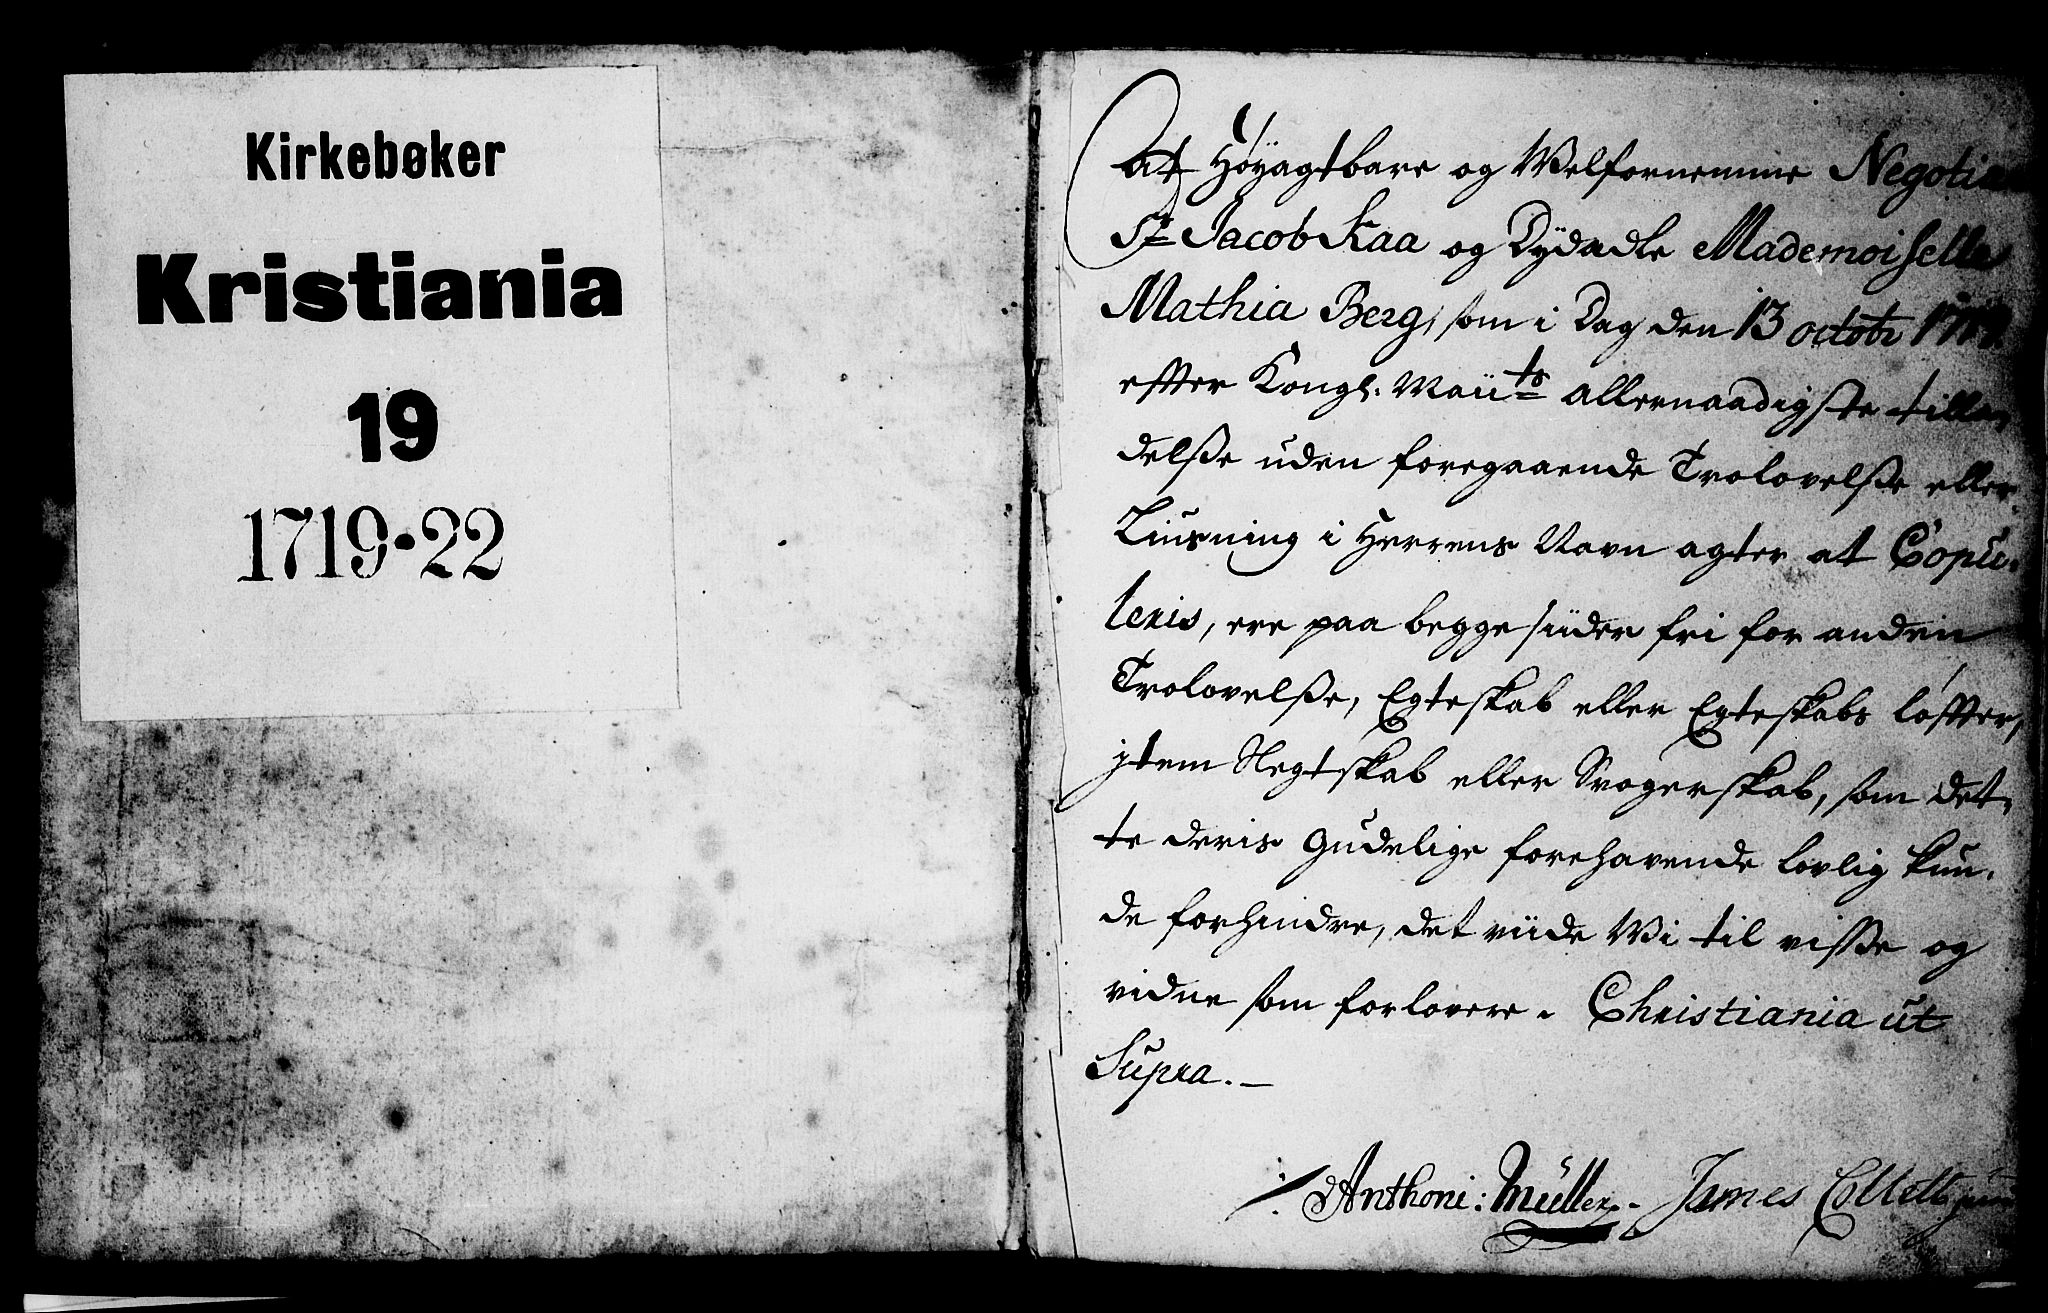 Kirkebøker
Kristiania
19
1719-22
At Høyagtbare og Welfornemme
Sr Jacob Kaa og Dydædle Mademoiselle
Mathia Berg, som i Dag den 13 octobr
effter Kongl: Maiits allernaadigste tilla,
delsse uden foregaaende Trolovelsse eller
Liusning i Herrens Navn agter at Copu-
leris, ere paa begge siider fri for anden
Trolovelsse, Egteskab eller Egteskabs løffter,
jtem Slegtskab eller Svogerskab, som det,
te deris gudelige forehavende lovlig kun,
de forhindre, det viide Wi til visse og
vidne som forlovere. Christiania ut
Supra.—
Anthoni: Müller. James Collett